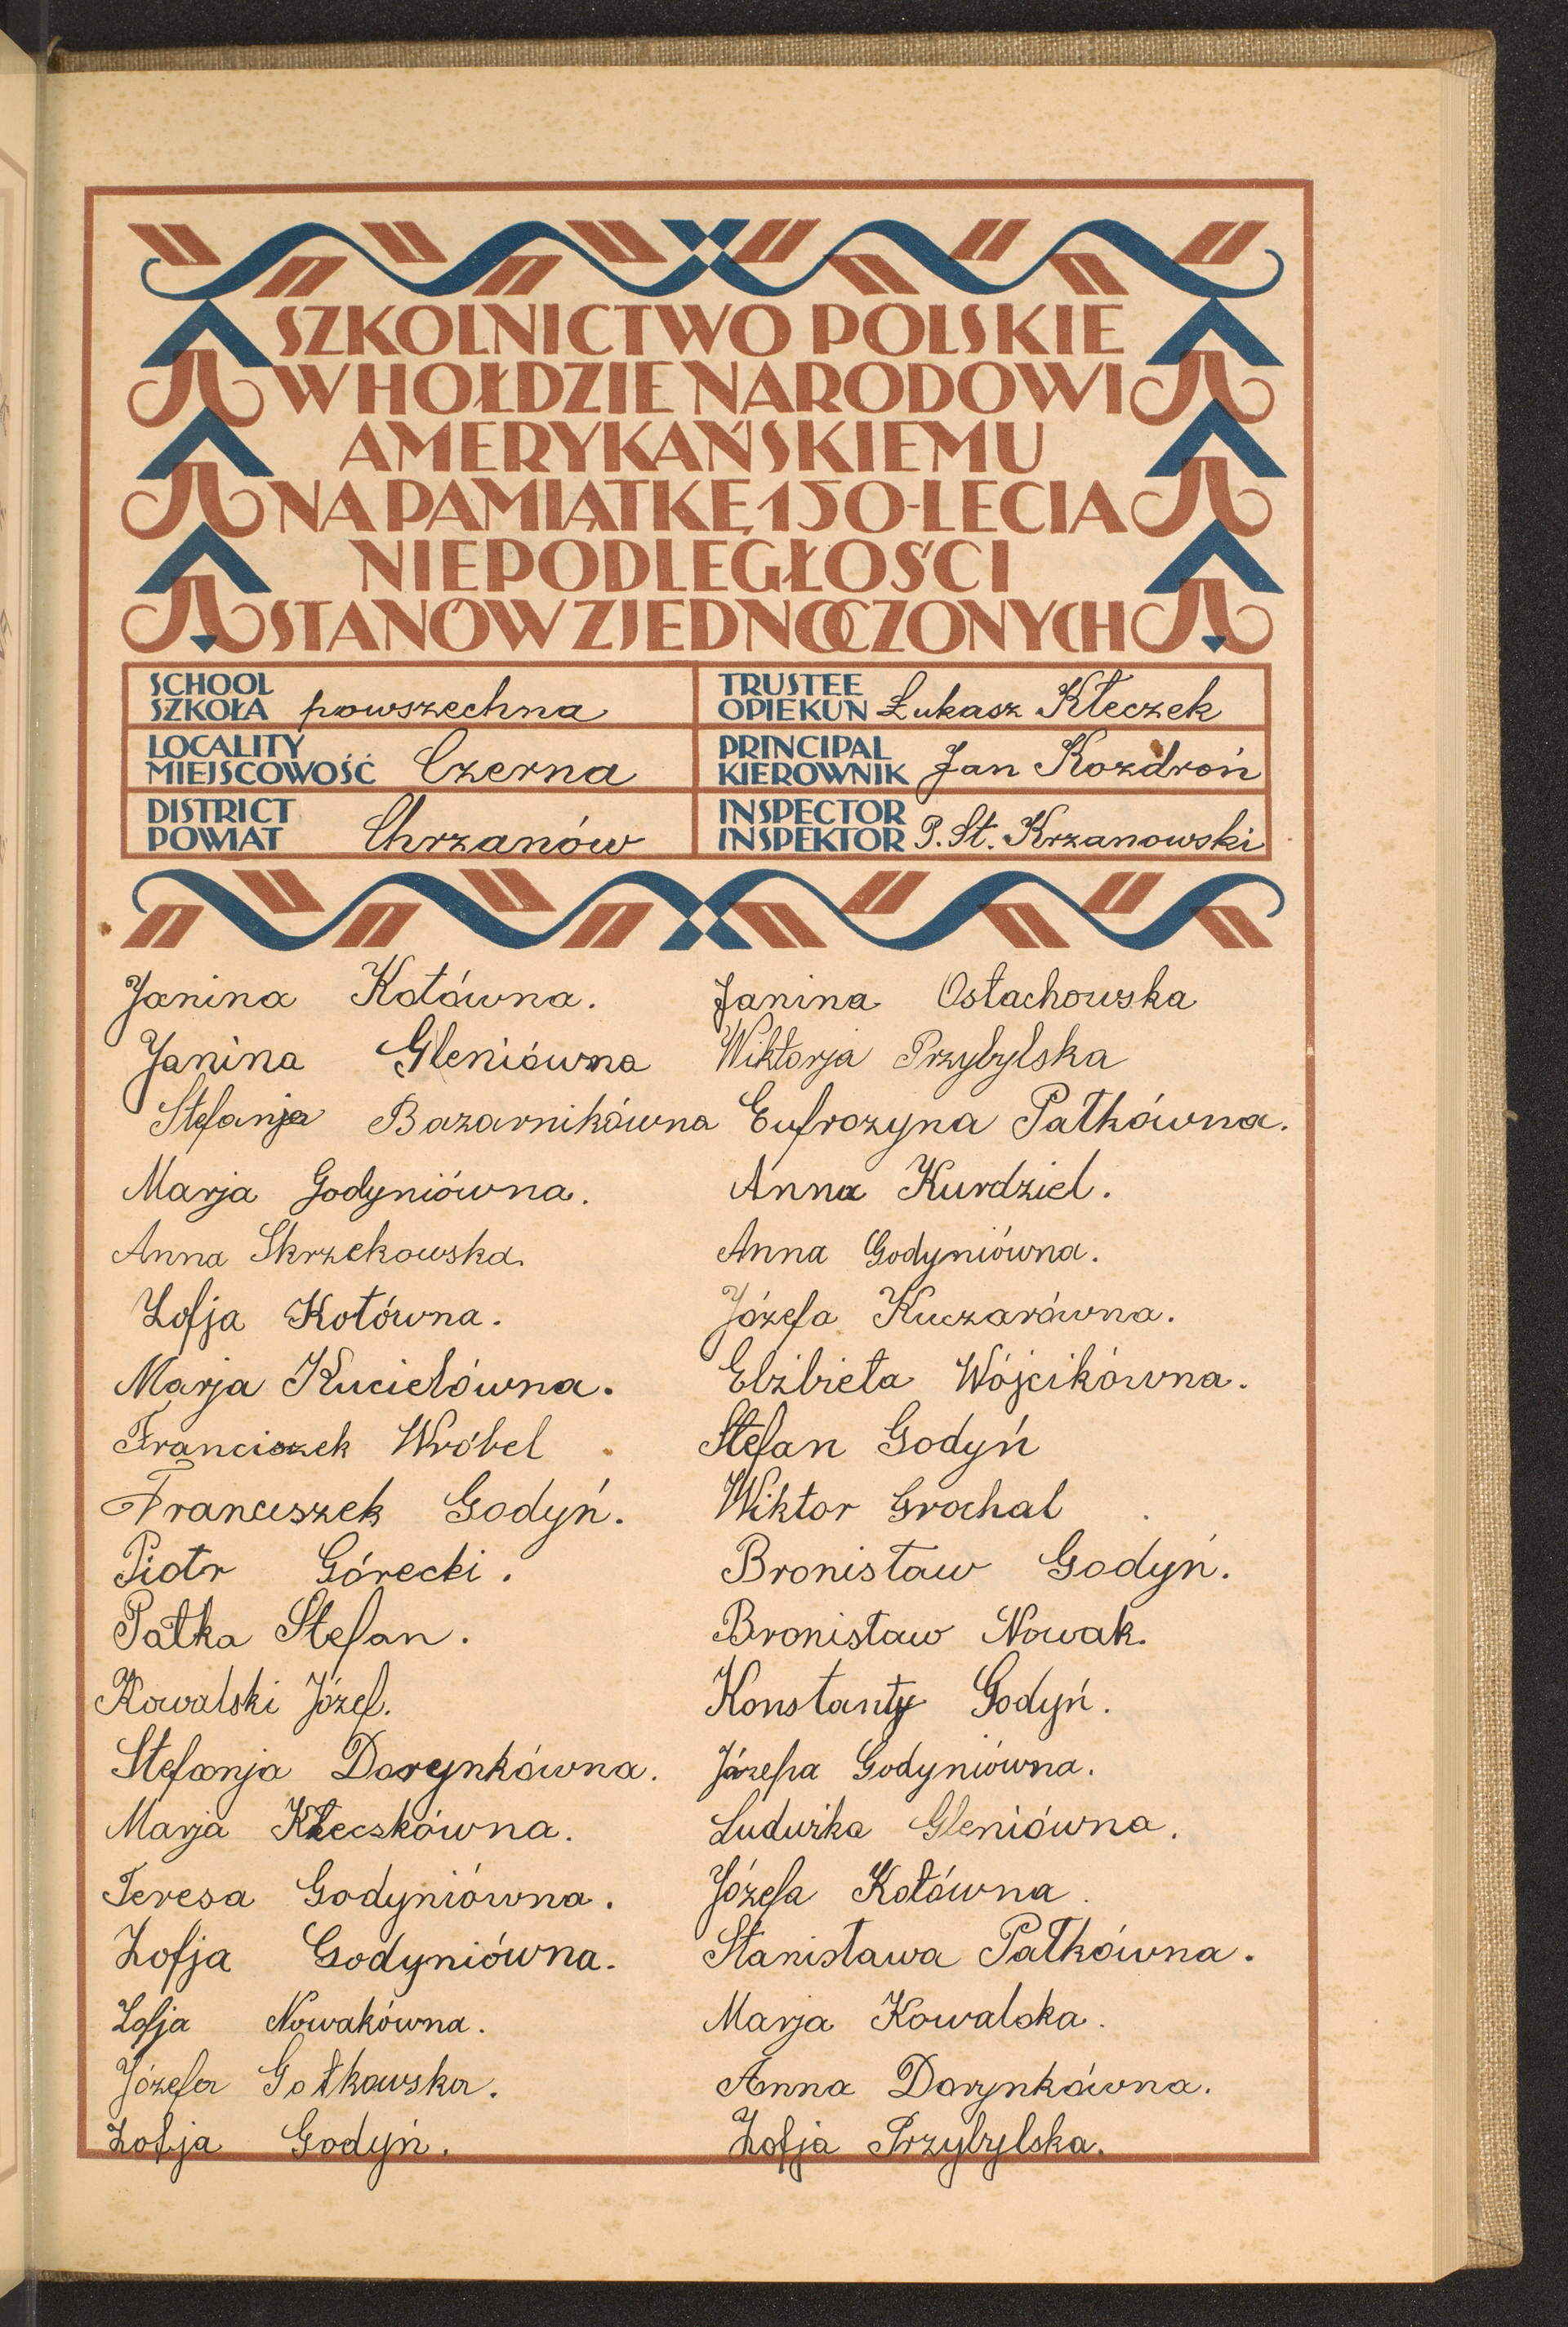 SZKOLNICTWO POLSKIE
W HOŁDZIE NARODOWI
AMERYKAŃSKIEMU
NA PAMIĄTKĘ 150-LECIA
NIEPODLEGŁOŚCI
STANÓW ZJEDNOCZONYCH
SCHOOL
SZKOŁA powszechna
TRUSTEE
OPIEKUN Łukasz Kłeczek
LOCALITY
MIEJSCOWOŚĆ Czerna
PRINCIPAL
KIEROWNIK Jan Kozdroń
DISTRICT
POWIAT Chrzanów
INSPECTOR
INSPEKTOR P. St. Krzanowski
Janina Kotówna.
Janina Gleniówna
Stefanja Bazarnikówna
Marja Godyniówna.
Anna Skrzekowska.
Zofja Kotówna.
Marja Kucielówna.
Franciszek Wróbel
Franciszek Godyń.
Piotr Górecki.
Pałka Stefan.
Kowalski Józef.
Stefanja Dorynkówna.
Marja Kłeczkówna.
Teresa Godyniówna.
Zofja Godyniówna.
Zofja Nowakówna.
Józefa Gołkowska.
Zofja Godyń.
Janina Ostachowska
Wiktorja Przybylska
Eufrozyna Pałkówna.
Anna Kurdziel.
Anna Godyniówna.
Józefa Kuczarówna.
Elżbieta Wójcikówna.
Stefan Godyń
Wiktor Grochal
Bronisław Godyń.
Bronisław Nowak.
Konstanty Godyń.
Józefa Godyniówna.
Ludwika Gleniówna.
Józefa Kotówna.
Stanisława Pałkówna.
Marja Kowalska.
Anna Dorynkówna.
Zofja Przybylska.